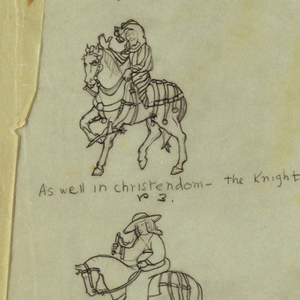 As well in christendom - the Knight
r 3.